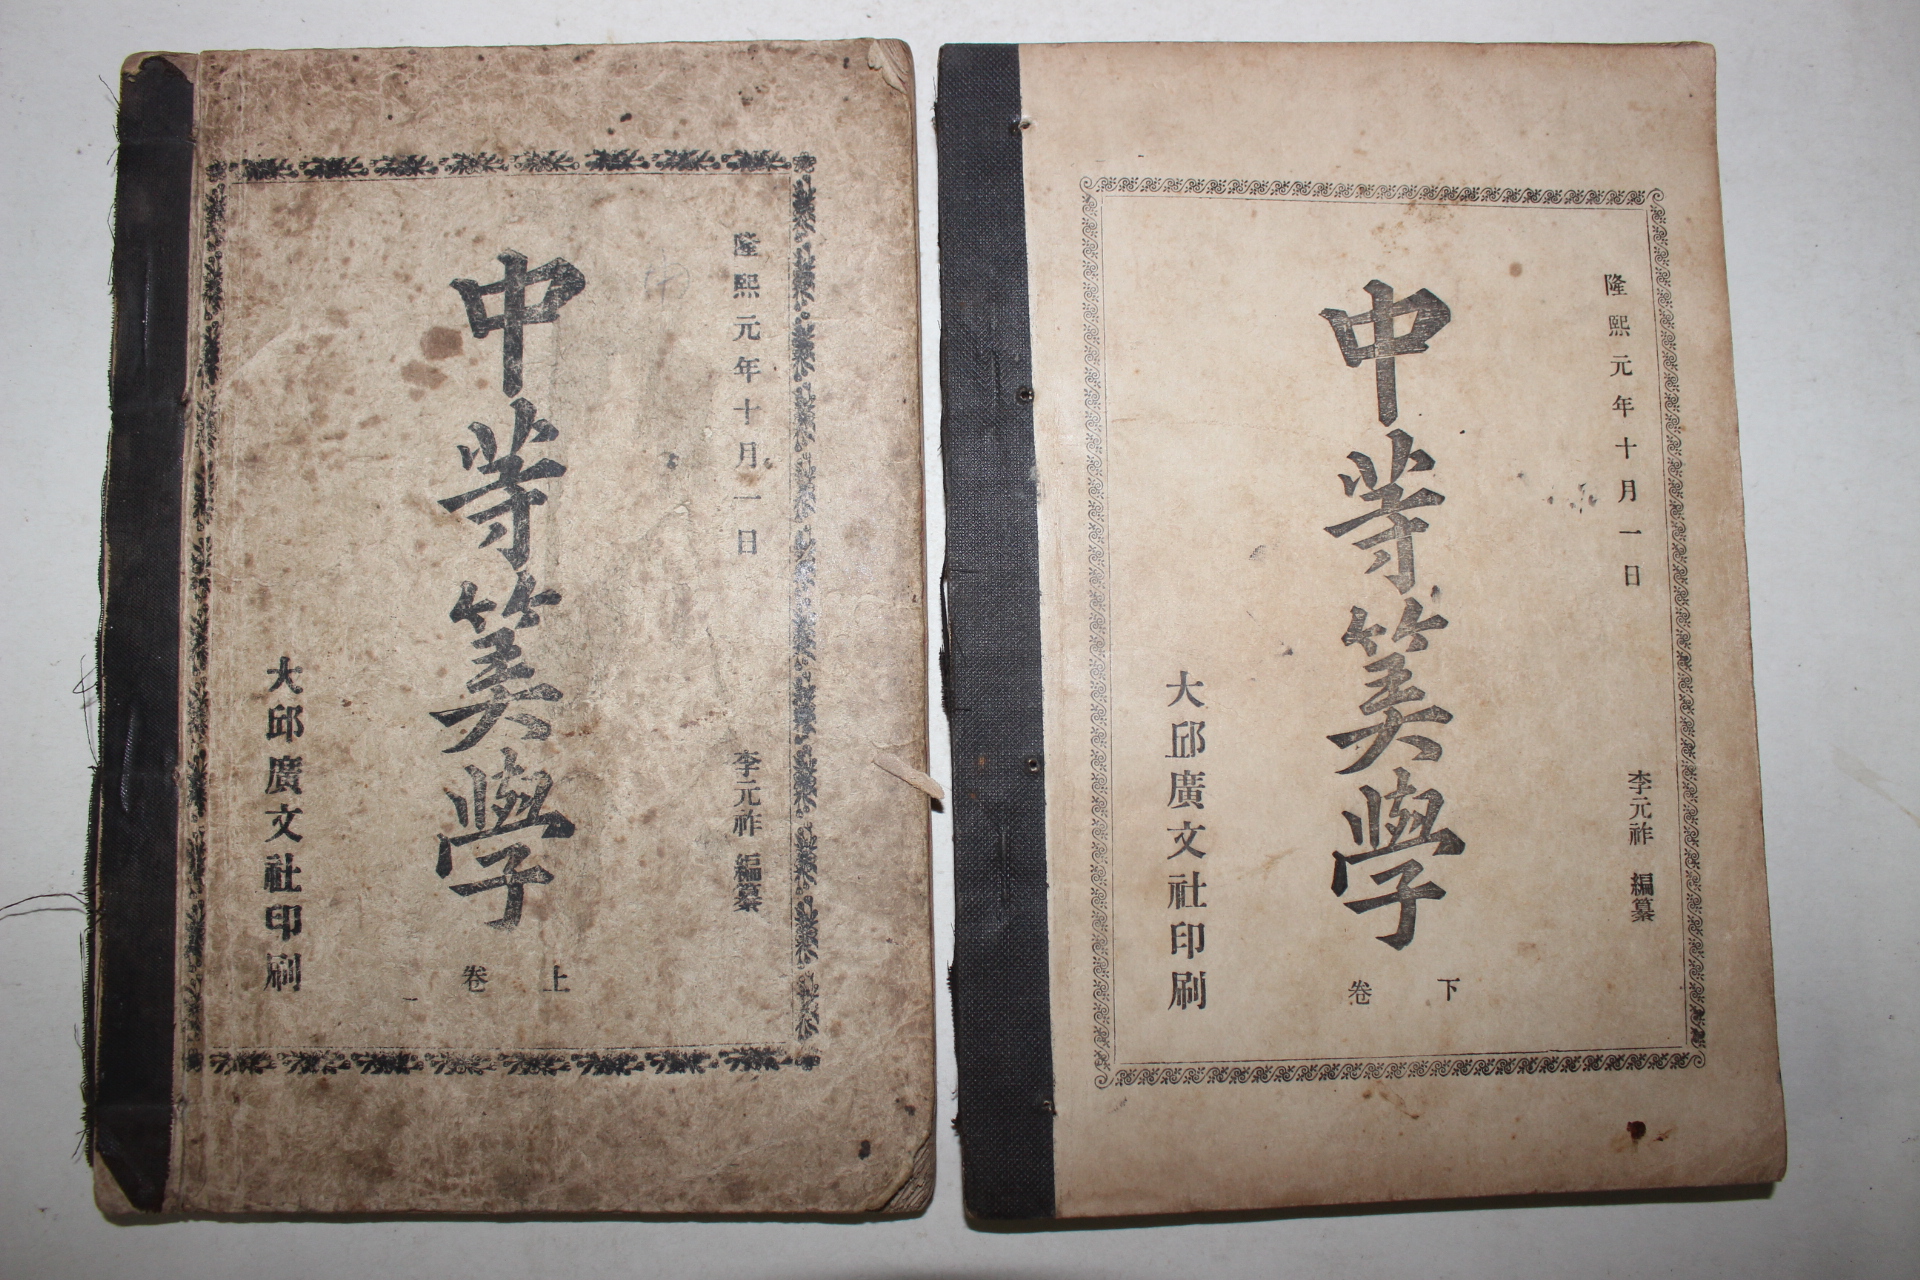 隆熙元年十月一日
李元祚 編纂
中等筭學
上
卷
大邱廣文社印刷
隆熙元年十月一日
李元祚 編纂
中等筭學
下
卷
大邱廣文社印刷